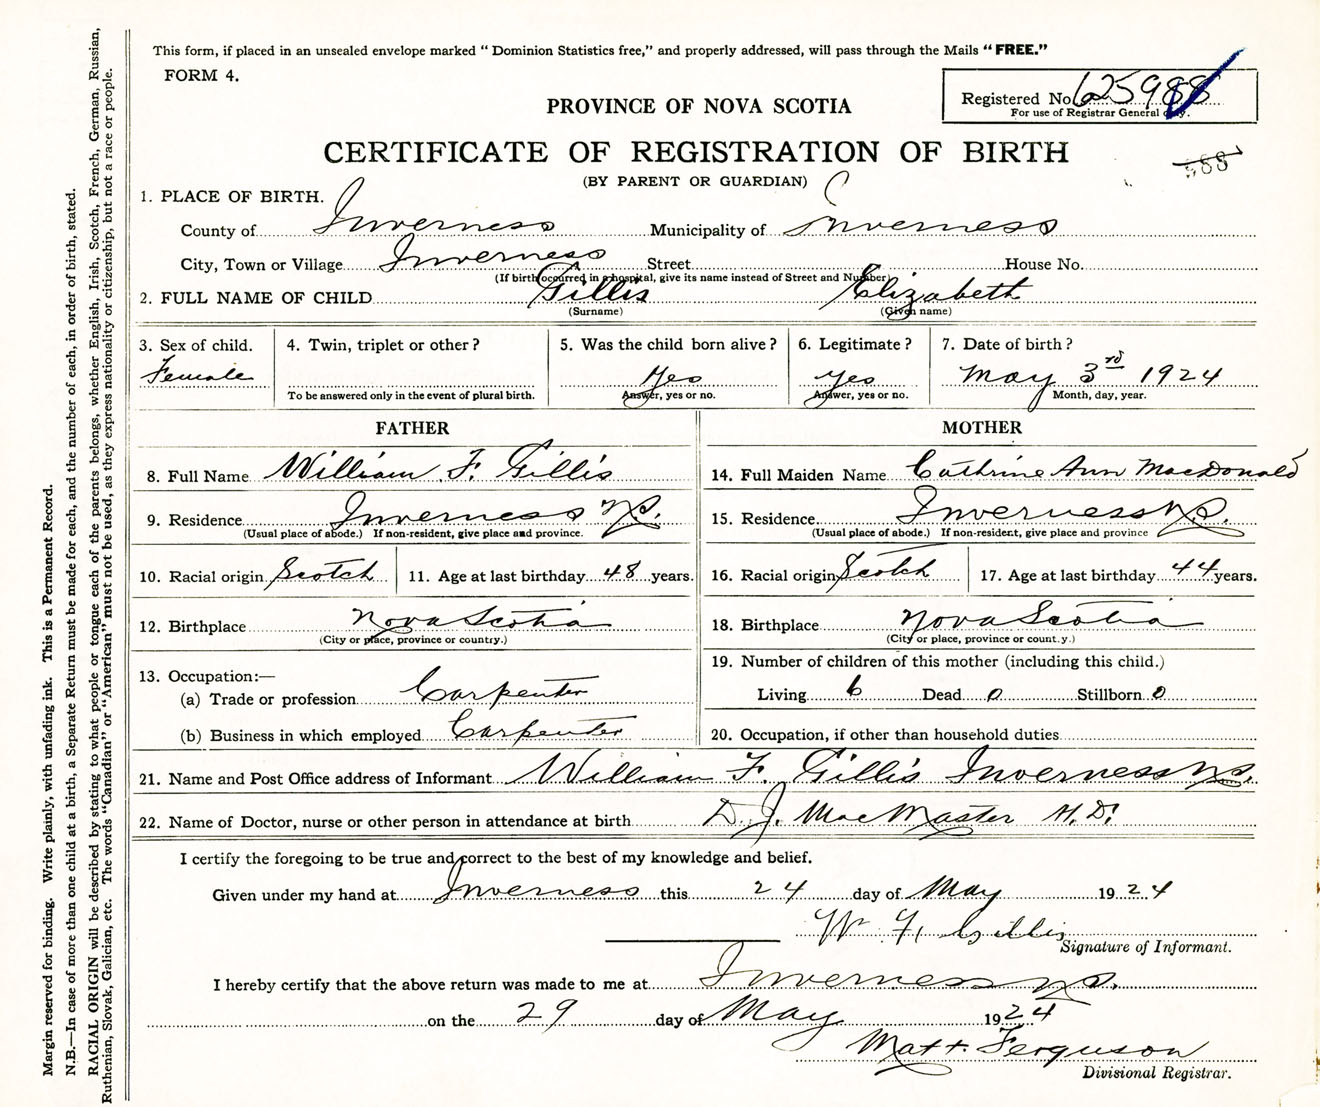 This form, if placed in an unsealed envelope marked “ Dominion Statistics free,” and properly addressed, will pass through the Mails “ FREE.”
FORM 4.
Registered No. 625988
For use of Registrar General only.
PROVINCE OF NOVA SCOTIA
CERTIFICATE OF REGISTRATION OF BIRTH
588
(BY PARENT OR GUARDIAN)
1. PLACE OF BIRTH.
County of Inverness Municipality of Inverness
City, Town or Village Inverness Street House No.
(If birth occurred in a hospital, give its name instead of Street and Number)
2. FULL NAME OF CHILD Gillis Elizabeth
(Surname) (Given name)
3. Sex of child. 4. Twin, triplet or other? 5. Was the child born alive? 6. Legitimate? 7. Date of birth?
Female Yes Yes May 3rd 1924
To be answered only in the event of plural birth. Answer, yes or no. Answer, yes or no. Month, day, year.
FATHER MOTHER
8. Full Name William F. Gillis 14. Full Maiden Name Cathrine Ann MacDonald
9. Residence Inverness N.S. 15. Residence Inverness N.S.
(Usual place of abode.) If non-resident, give place and province. (Usual place of abode.) If non-resident, give place and province
10. Racial origin Scotch 11. Age at last birthday 48 years. 16. Racial origin Scotch 17. Age at last birthday 44 years.
12. Birthplace Nova Scotia 18. Birthplace Nova Scotia
(City or place, province or country.) (City or place, province or count.y.)
13. Occupation:— 19. Number of children of this mother (including this child.)
(a) Trade or profession Carpenter Living 6 Dead 0 Stillborn 0
(b) Business in which employed Carpenter 20. Occupation, if other than household duties
21. Name and Post Office address of Informant William F. Gillis Inverness N.S.
22. Name of Doctor, nurse or other person in attendance at birth D. J. MacMaster M.D.
I certify the foregoing to be true and correct to the best of my knowledge and belief.
Given under my hand at Inverness this 24 day of May 1924
W. F. Gillis
Signature of Informant.
I hereby certify that the above return was made to me at Inverness N.S.
on the 29 day of May 1924
Matt. Ferguson
Divisional Registrar.
Margin reserved for binding. Write plainly, with unfading ink. This is a Permanent Record.
N.B.—In case of more than one child at a birth, a Separate Return must be made for each, and the number of each, in order of birth, stated.
RACIAL ORIGIN will be described by stating to what people or tongue each of the parents belongs, whether English, Irish, Scotch, French, German, Russian,
Ruthenian, Slovak, Galician, etc. The words “Canadian” or “American” must not be used, as they express nationality or citizenship, but not a race or people.